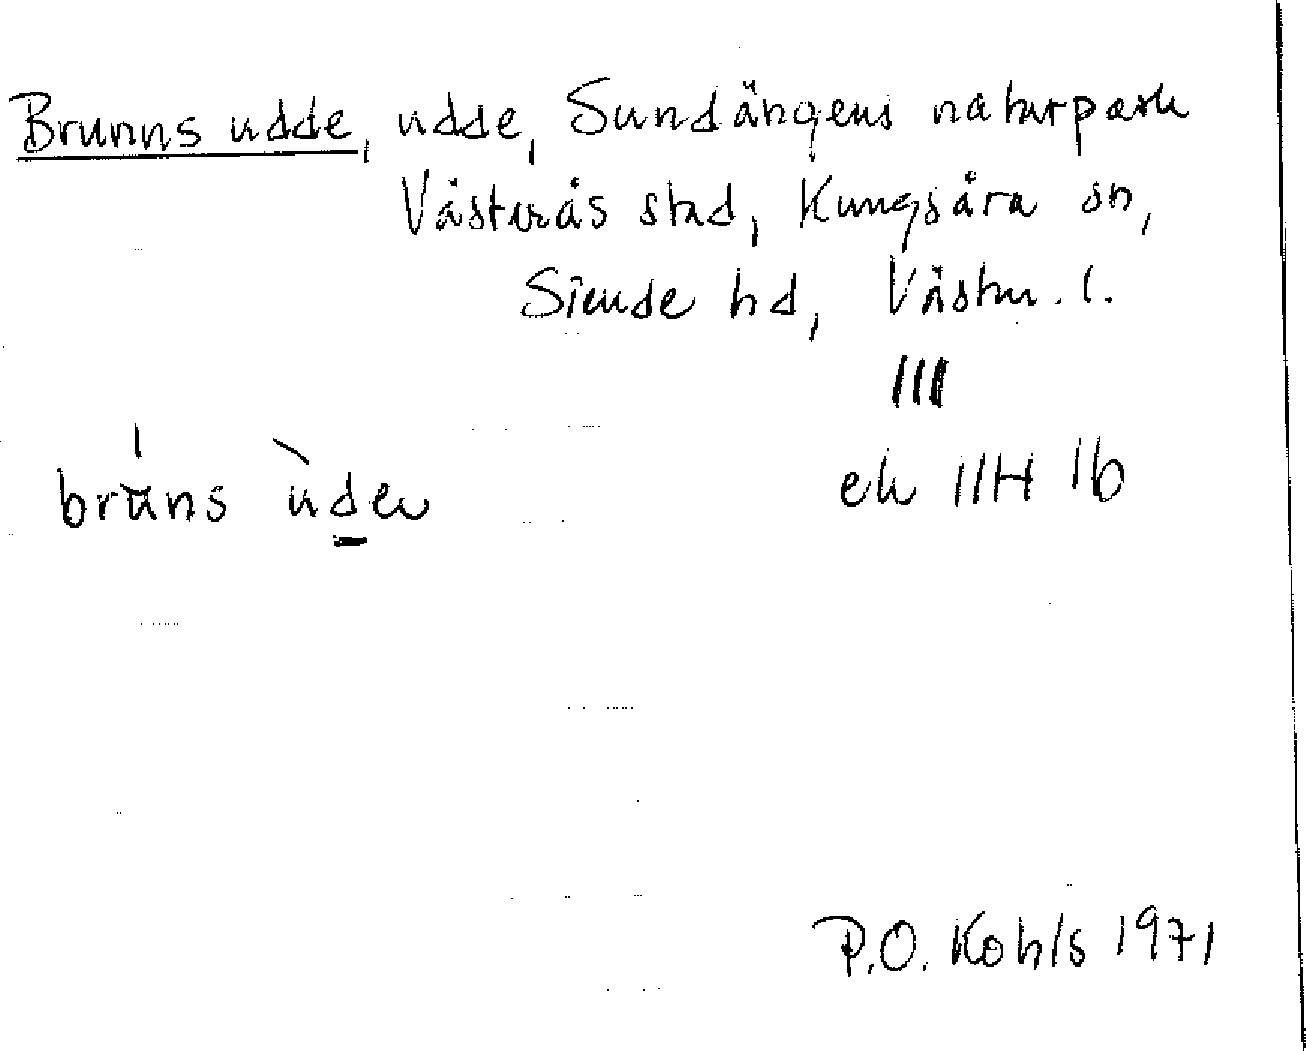 Brunns udde, udde, Sundängens naturpark
Västerås stad, Kungsåra sn,
Siende hd, Västm. l.
III
bruns uden
ek 11H 1b
P.O. Kohls 1971